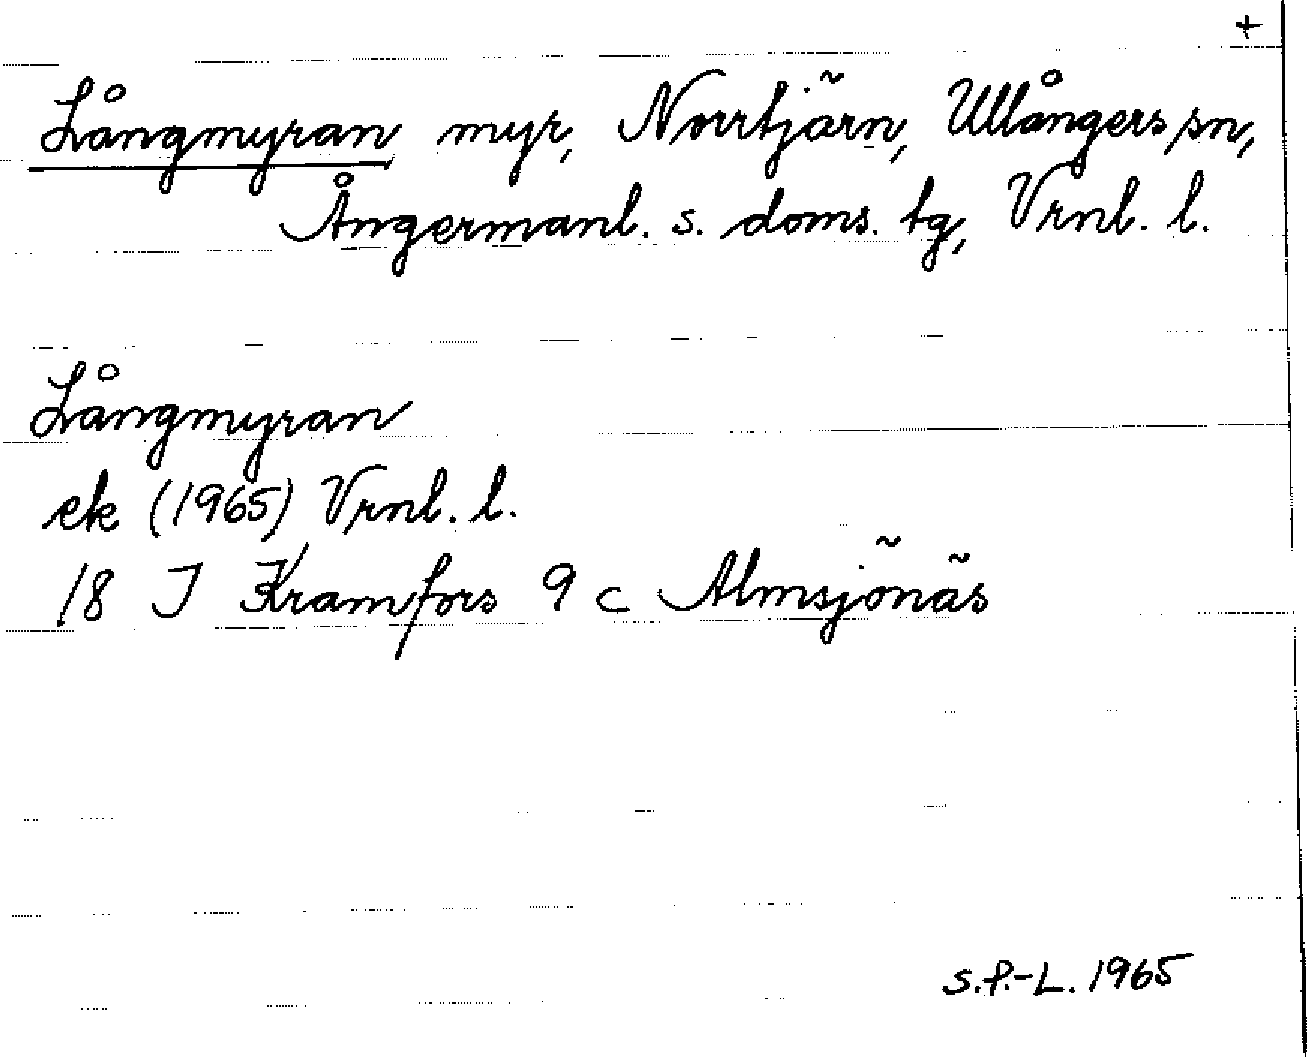 +
Långmyran myr, Norrtjärn, Ullångers sn,
Ångermanl. s. doms. tg, Vrnl. l.
Långmyran
ek (1965) Vrnl. l.
18 I Kramfors 9 c Almsjönäs
S.P.-L. 1965